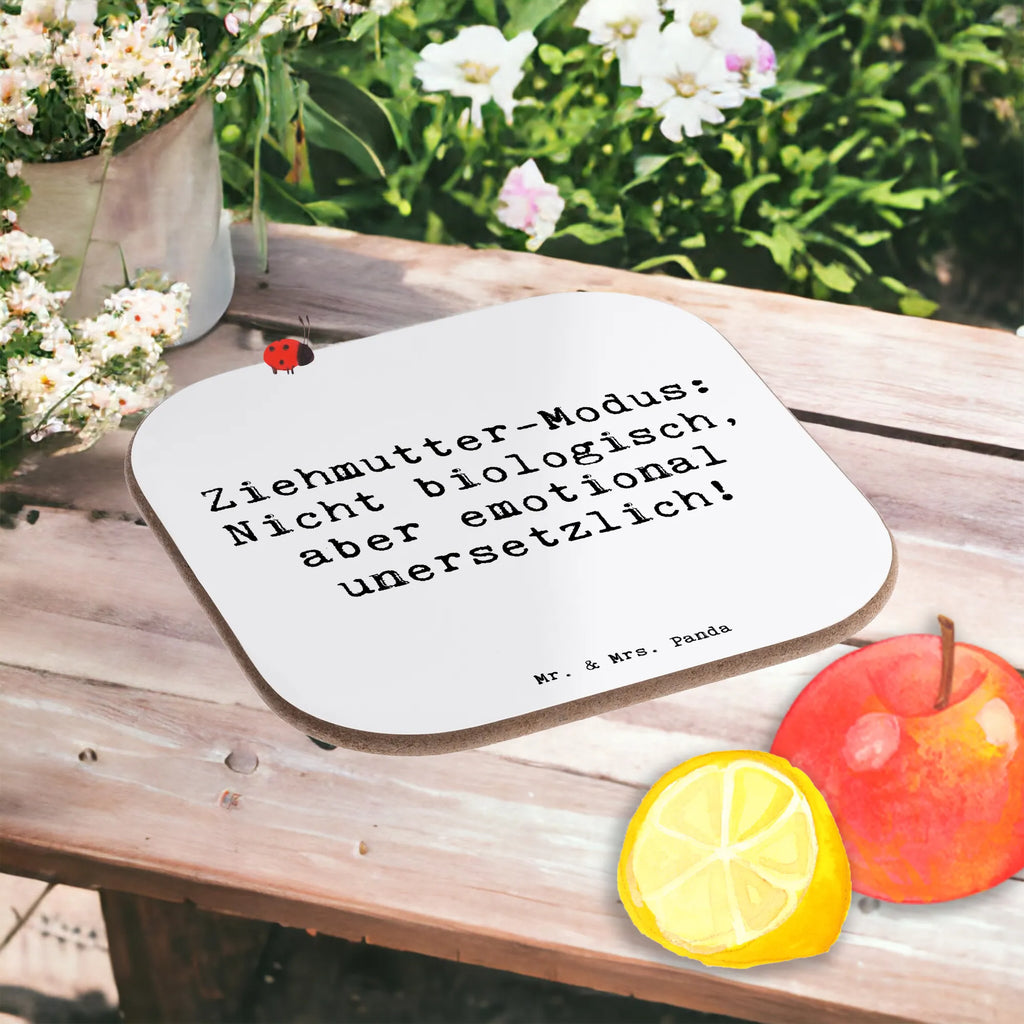 Ziehmutter-Modus:
Nicht biologisch,
aber emotional
unersetzlich!
Mr. & Mrs. Panda